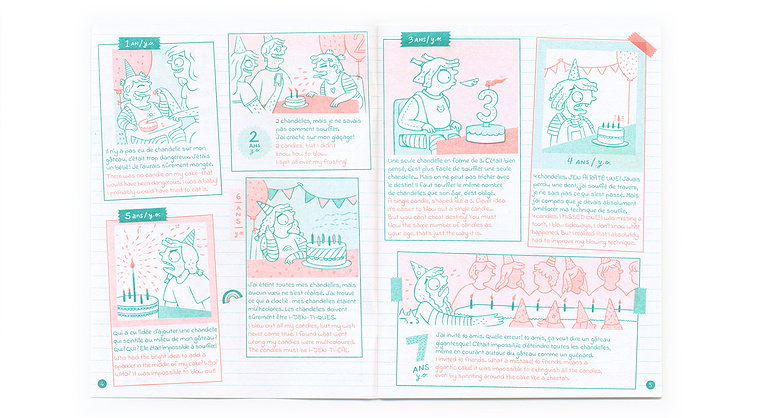 1 AN/y.o.
Il n'y a pas eu de chandelle sur mon
gâteau, c'était trop dangereux. J'étais
un bébé! Je l'aurais sûrement mangée.
There was no candle on my cake-that
would have been dangerous. I was a baby!
I probably would have tried to eat it.
2
2 ANS
y.o.
2 chandelles, mais je ne savais
pas comment souffler.
J'ai craché sur mon glaçage!
2 candles, but I didn't
know how to blow.
I spit all over my frosting!
5 ans/y.o.
Qui a eu l'idée d'ajouter une chandelle
qui scintille au milieu de mon gâteau?
Qui? QUI? Elle était impossible à souffler!
Who had the bright idea to add a
sparkler in the middle of my cake? Who?
Who? It was impossible to blow out!
6 ANS/y.o.
J'ai éteint toutes mes chandelles, mais
aucun vœu ne s'est réalisé. J'ai trouvé
ce qui a cloché : mes chandelles étaient
multicolores. Les chandelles doivent
sûrement être I-DEN-TI-QUES.
I blew out all my candles, but my wish
never came true. I found what went
wrong: my candles were multicolored.
The candles must be I-DEN-TI-CAL.
4
3 ANS/y.o.
3
Une seule chandelle en forme de 3. C'était bien
pensé, c'est plus facile de souffler une seule
chandelle... Mais on ne peut pas tricher avec
le destin! Il faut souffler le même nombre
de chandelles que son âge, c'est obligé.
A single candle, shaped like a 3. Clever idea
it's easier to blow out a single candle...
But you can't cheat destiny! You must
blow the same number of candles as
your age, that's just the way it is.
4 ANS/y.o.
4 chandelles. J'EN AI RATÉ UNE! J'avais
perdu une dent, j'ai soufflé de travers,
je ne sais pas ce qui s'est passé. Mais
j'ai compris que je devais absolument
améliorer ma technique de souffle.
4 candles. I MISSED ONE! I was missing a
tooth, I blew sideways, I don't know what
happened. But I realized that I absolutely
had to improve my blowing technique.
7
ANS
y.o.
J'ai invité 10 amis. Quelle erreur! 10 amis, ça veut dire un gâteau
gigantesque! C'était impossible d'éteindre toutes les chandelles,
même en courant autour du gâteau comme un guépard.
I invited 10 friends. What a mistake! 10 friends means a
gigantic cake! It was impossible to extinguish all the candles,
even by sprinting around the cake like a cheetah.
5